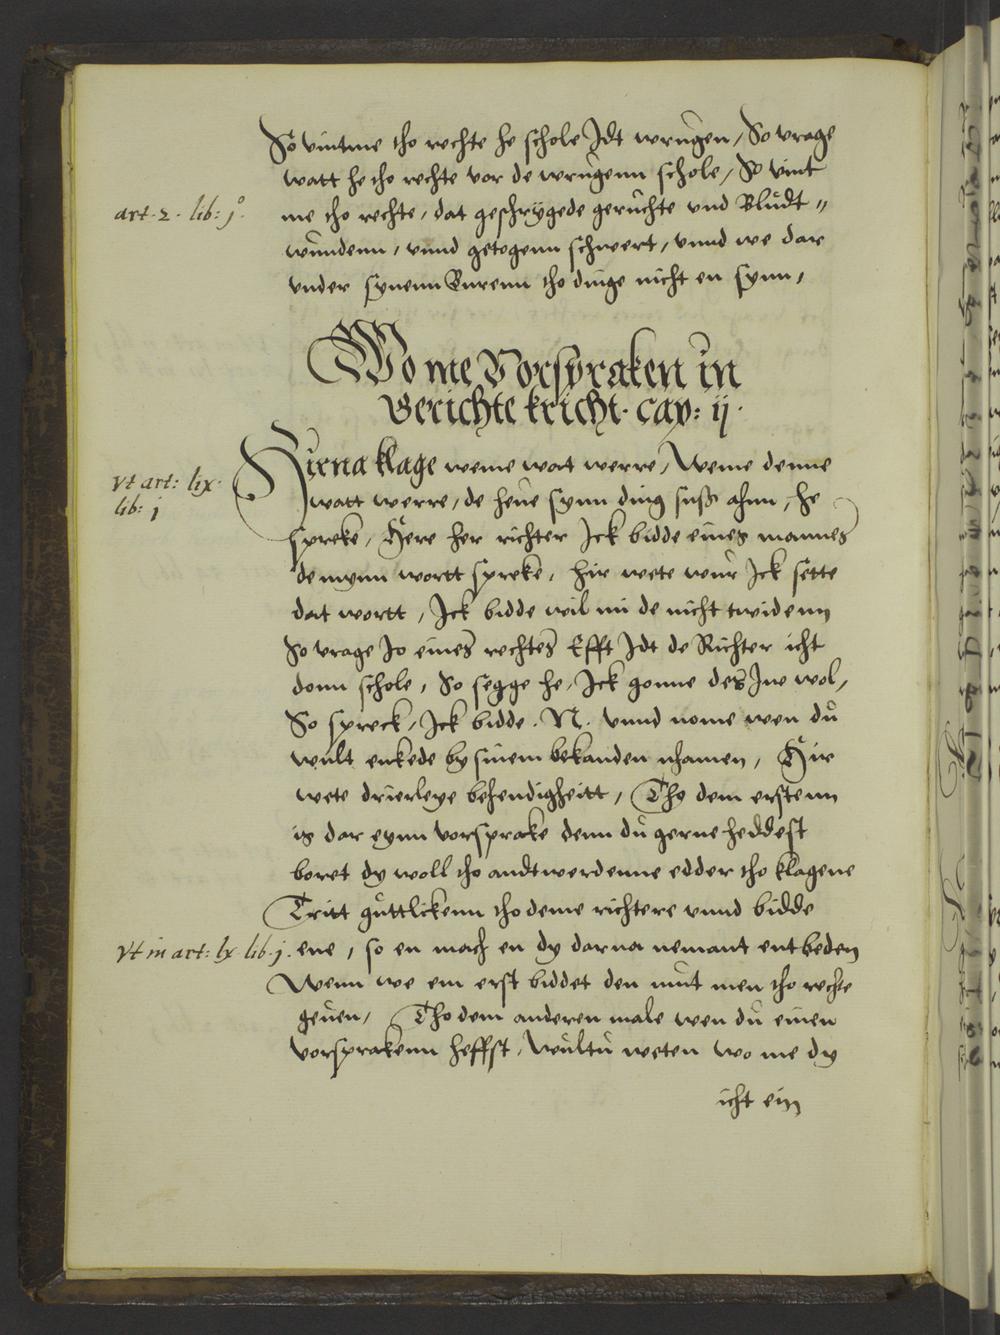 So vintme tho rechte he schole Idt wrugen / So vrage
watt he tho rechte vor de wrugenn schole / So vint
art. 2. lib: jº.
me tho rechte / dat geschrygede geruchte vnd Bludt //
wundenn / vnnd getogenn schwert / vnnd we dar
vnder synenn Burenn tho dinge nicht en synn /
Wo me Vorspraken in
Gerichte kricht. cap: ij.
vt art: lix.
lib: j
Hirna klage weme wat werre / Weme denne
watt werre / de heue synn ding suss ahnn / he
spreke / Here her richter Ick bidde eines mannes
de mynn wortt spreke / hir wete wur Ick sette
dat wortt / Ick bidde wil mi de nicht twidenn
So vrage Jo eines rechtes Efft Idt de Richter icht
donn schole / So segge he / Ick gonne des Jw wol /
So spreck / Ick bidde . N . vnnd nome wen du
wult enkede by sinem bekanden nhamen / Hir
wete drierleye behendigheitt / Tho dem erstenn
is dar eynn vorsprake denn du gerne heddest
boret dy woll tho andtwerdenne edder tho klagene
Tritt guttlickenn tho deme richtere vnnd bidde
vt in art: lx lib. j.
ene / so en mach en dy darna nemant entbeden
Wenn we em erst biddet den mut men tho rechte
geuen / Tho dem anderen male wen du einen
vorsprakenn heffst / wultu weten wo me dy
icht ein